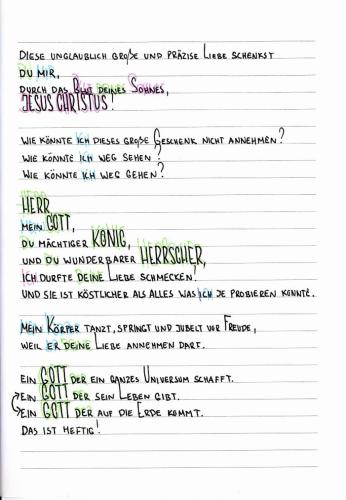 Diese unglaublich große und präzise Liebe schenkst
du mir,
durch das Blut deines Sohnes,
JESUS CHRISTUS!
Wie könnte ich dieses große Geschenk nicht annehmen?
Wie könnte ich weg sehen?
Wie könnte ich weg gehen?
HERR
mein GOTT,
du mächtiger KÖNIG,
und du wunderbarer HERRSCHER,
ich durfte deine Liebe schmecken!
Und sie ist köstlicher als alles was ich je probieren konnte.
Mein Körper tanzt, springt und jubelt vor Freude,
weil er deine Liebe annehmen darf.
Ein GOTT der ein ganzes Universum schafft.
Ein GOTT der sein Leben gibt.
Ein GOTT der auf die Erde kommt.
Das ist heftig!